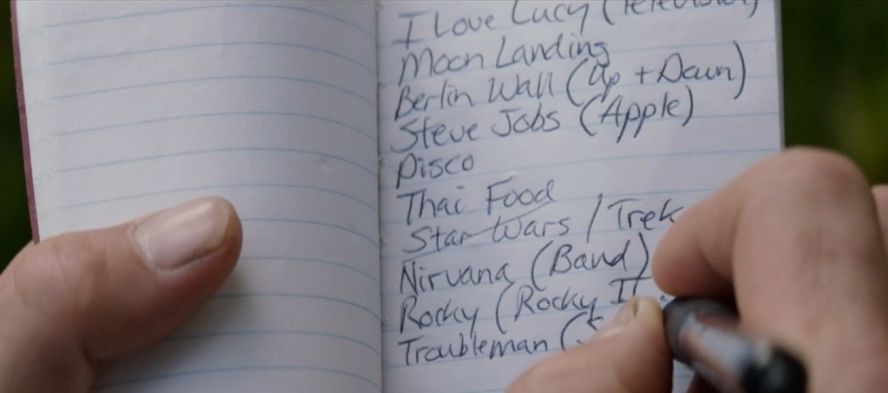 I Love Lucy (Television)
Moon Landing
Berlin Wall (Up + Down)
Steve Jobs (Apple)
Disco
Thai Food
Star Wars / Trek
Nirvana (Band)
Rocky (Rocky II
Troubleman (S